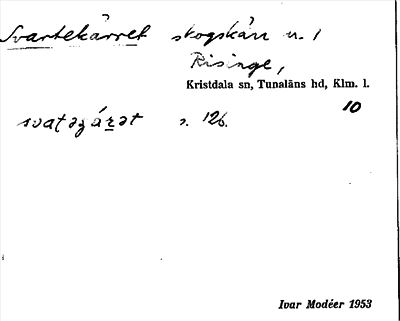 Svartekärret skogskärr n. 1
Risinge,
Kristdala sn, Tunaläns hd, Klm. l.
10
s. 126.
Ivar Modéer 1953